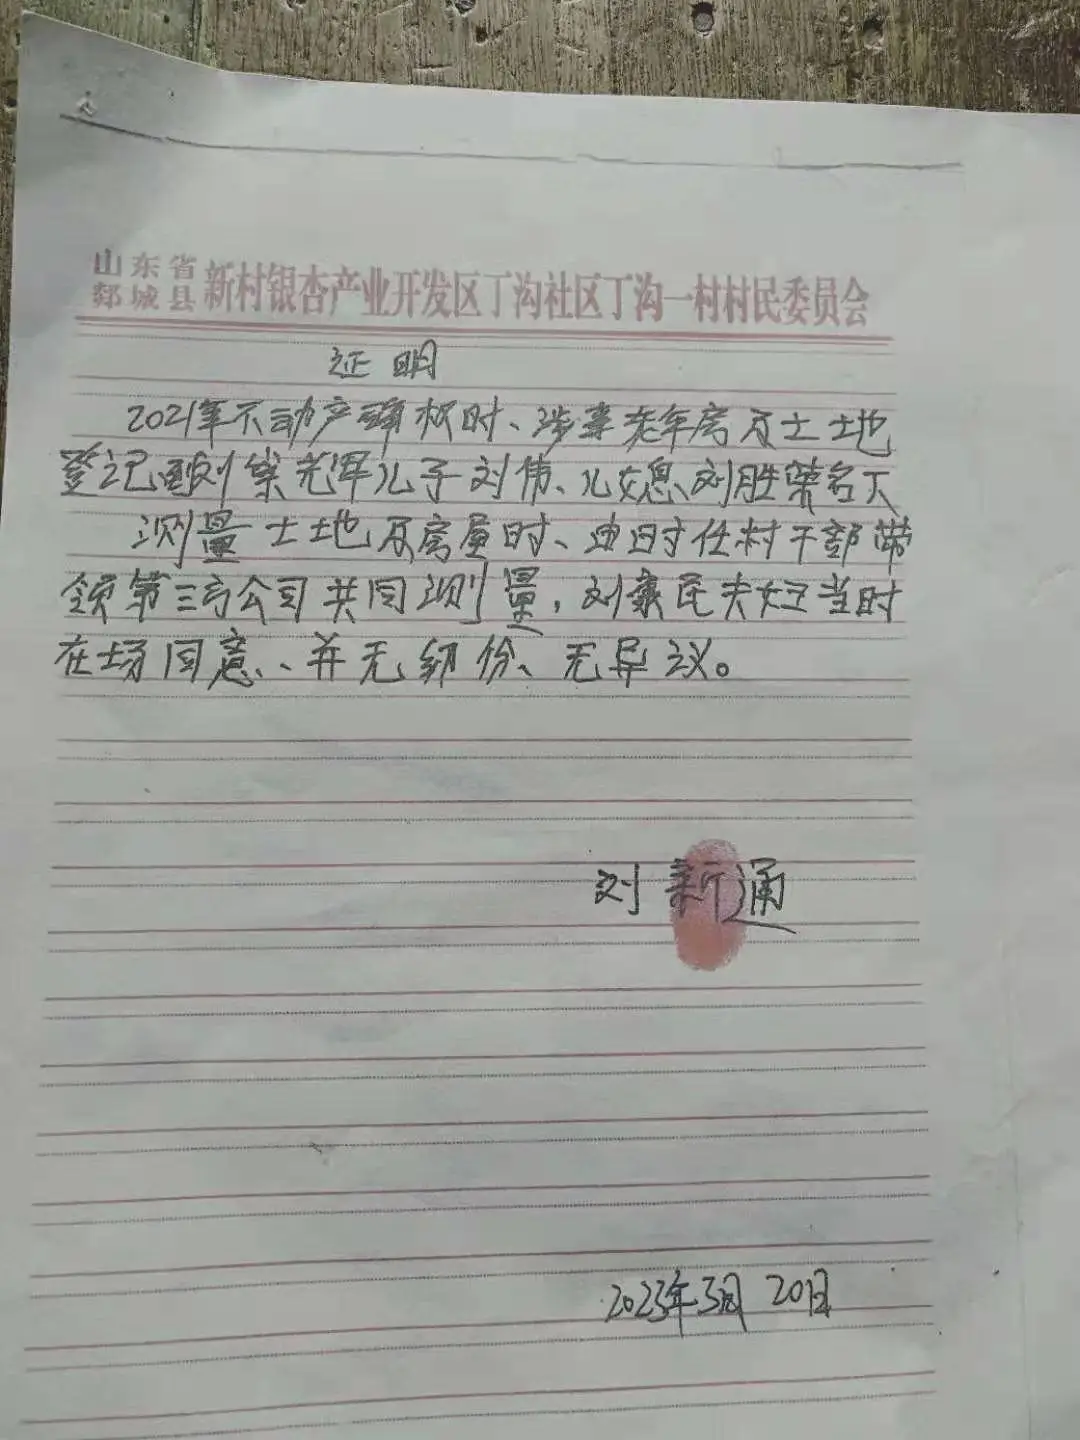 山东省
郯城县 新村银杏产业开发区丁沟社区丁沟一村村民委员会
证明
2021年不动产确权时、涉案老年房及土地
登记到刘 儿子刘伟、儿媳刘胜荣名下
测量土地及房屋时、由时任村干部带
领第三方公司共同测量,刘 民夫妇当时
在场同意、并无纠纷、无异议。
刘新通
2023年3月20日